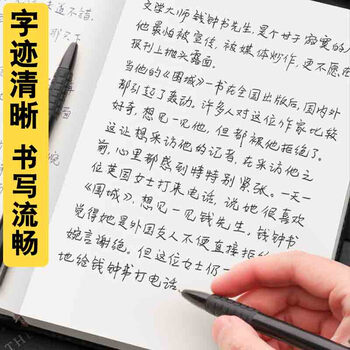 字迹清晰
书写流畅
文学大师钱钟书先生,是个甘于寂寞的人
他最怕被宣传,被媒体炒作,更不愿在
报刊上抛头露面。
当他的《围城》一书在全国出版后,国内外
都引起了轰动。许多人对这位作家比较
好奇,想见一见他,但都被他拒绝了。
这让想采访他的记者,在采访他之
前,心里都感到特特别紧张。一天一
位英国女士打来电话,说她很喜欢
《围城》,想见一见钱先生,钱钟书
觉得她是外国友人不便直接拒
婉言谢绝。但这位女士仍一
地给钱钟书打电话